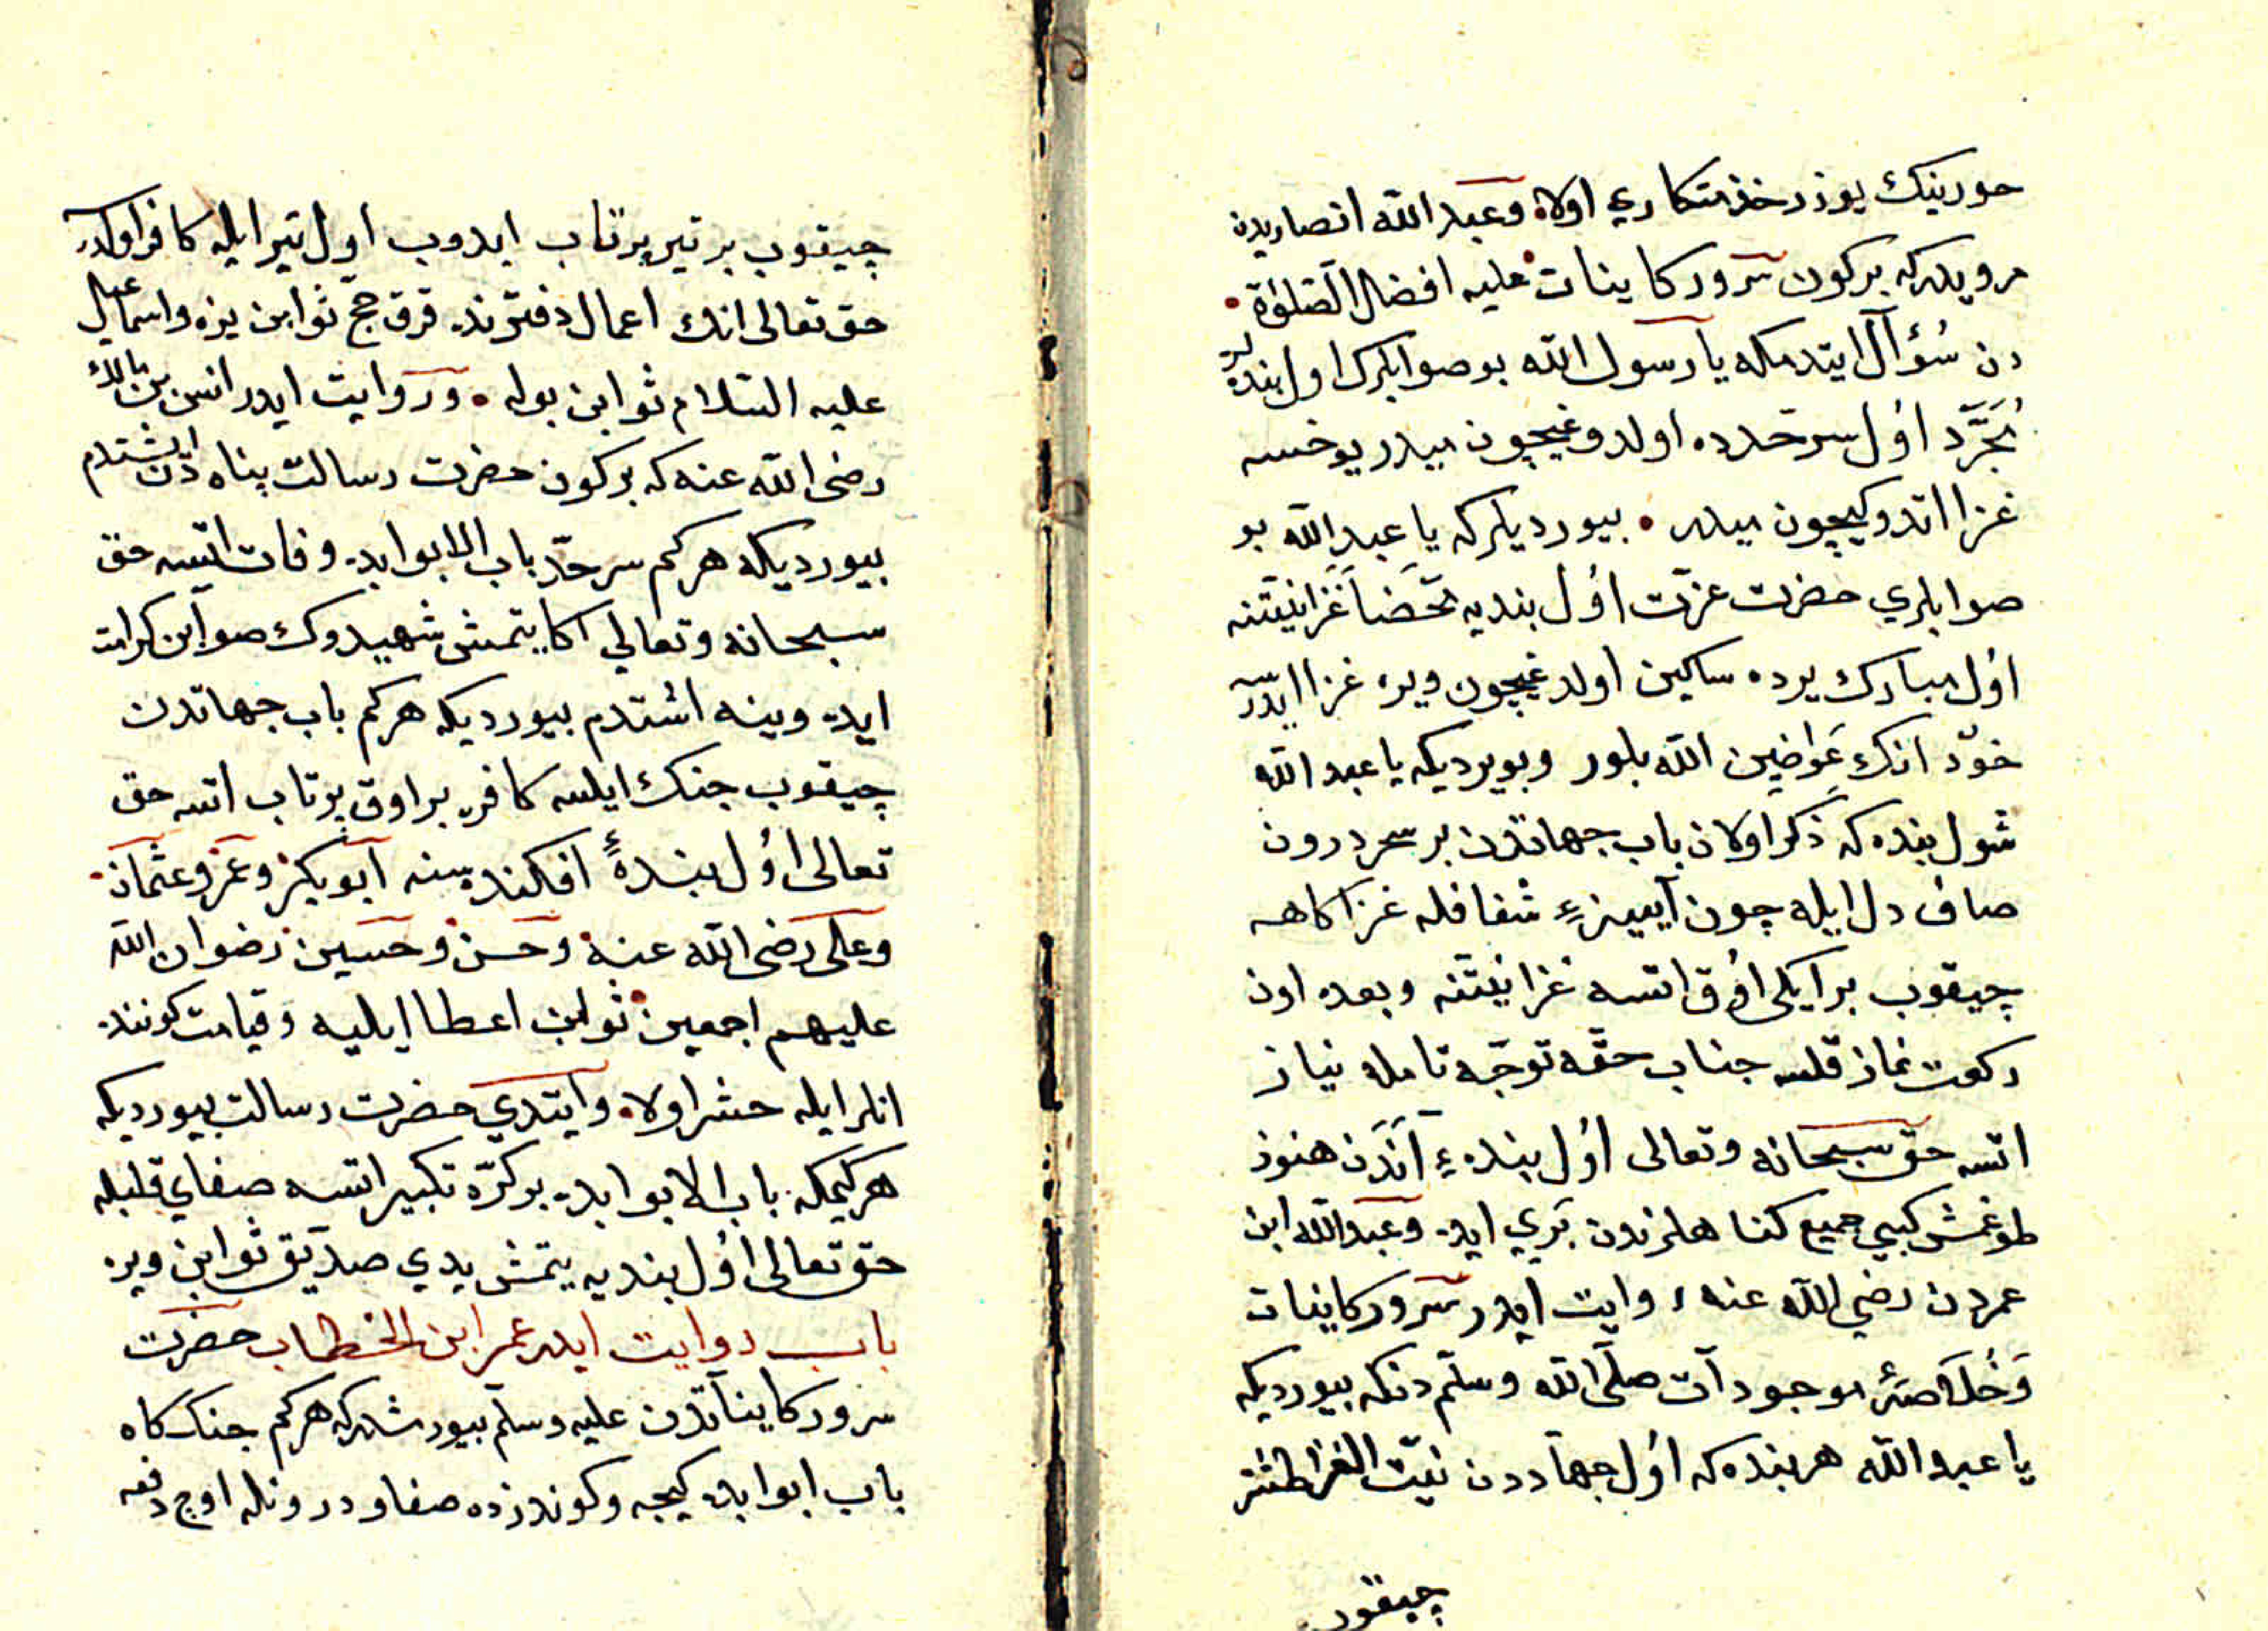 حورينك يوزر خذمتكاري اولاه وعبد الله انصاريدن
مرويدركه بركون سرور كاينات عليه افضل الصلوة
دن سُؤال ايتدمكه يا رسول الله بو صوابلرك اول بنده لر
مُجَرَّد اوُل سرحدده اولدوغيچون ميدر يوخسه
غزا اتدوكيچون ميدر بيورديلركه يا عبد الله بو
صوابلري حضرت عزت اوُل بنديه محضا غزا نيتنه
اوُل مبارك يرده ساكين اولدغيچون ويره غزا ايدرسه
خوّد انك عَواضين الله بلور وبويرديكه يا عبد الله
شول بنده كه ذكر اولان باب جهاتدن بر سحر درون
صاف دل ايله چون آيينۀ شفافله غزاكاهه
چيقوب بر ايكى اوُق اتسه غزا نيتنه وبعده اون
ركعت نماز قلسه جناب حقه توجّه تامله نياز
اتسه حق سبحانه وتعالى اوُل بندهء آنَدَن هنوز
طوغمش كبي جميع كناهلرندن بَري ايده وعبد الله ابن
عمردن رضي الله عنه روايت ايدر سرور كاينات
وَخُلَاصۀ موجودآت صلّى الله وسلّم دنكه بيورديكه
يا عبد الله هر بنده كه اوُل جهاددن نيّت الغزا طشر
چيقوب
چيقوب بر تير پرتاب ايدوب اول تير ايله كافر اولدر
حق تعالى انك اعمال دفترنده قرق حج ثوابن يزه واسماعيل
عليه السلام ثوابن بوله و روايت ايدر انس بن مالك
رضى الله عنه كه بركون حضرت رسالت پناه دن اشتدم
بيورديكه هركم سرحدّ باب الابوابده وفات ايتسه حق
سبحانه وتعالي اكا يتمش شهيدوك صوابن كرامت
ايده وينه اشتدم بيورديكه هركم باب جهاتدن
چيقوب جنك ايلسه كافره بر اوق پرتاب اتسه حق
تعالى اوُل بندهٔ افكندهسنه ابو بكر وعمر وعثمان
وعلى رضى الله عنه وحسن وحسين رضوان الله
عليهم اجمعين ثوابن اعطا ايليه وقيامت كوننده
انلر ايله حشر اولاه وايتدي حضرت رسالت بيورديكه
هركيمكه باب الابوابده بر كرّه تكبير اتسه صفاي قلبله
حق تعالى اوُل بنديه يتمش يدي صدّيق ثوابن ويره
باب روايت ايدر عمر ابن الخطاب حضرت
سرور كايناتدن عليه وسلم بيورمشدركه هركم جنك كاه
باب ابوابده كيجه وكوندزده صفاو درونله اوچ دفعه